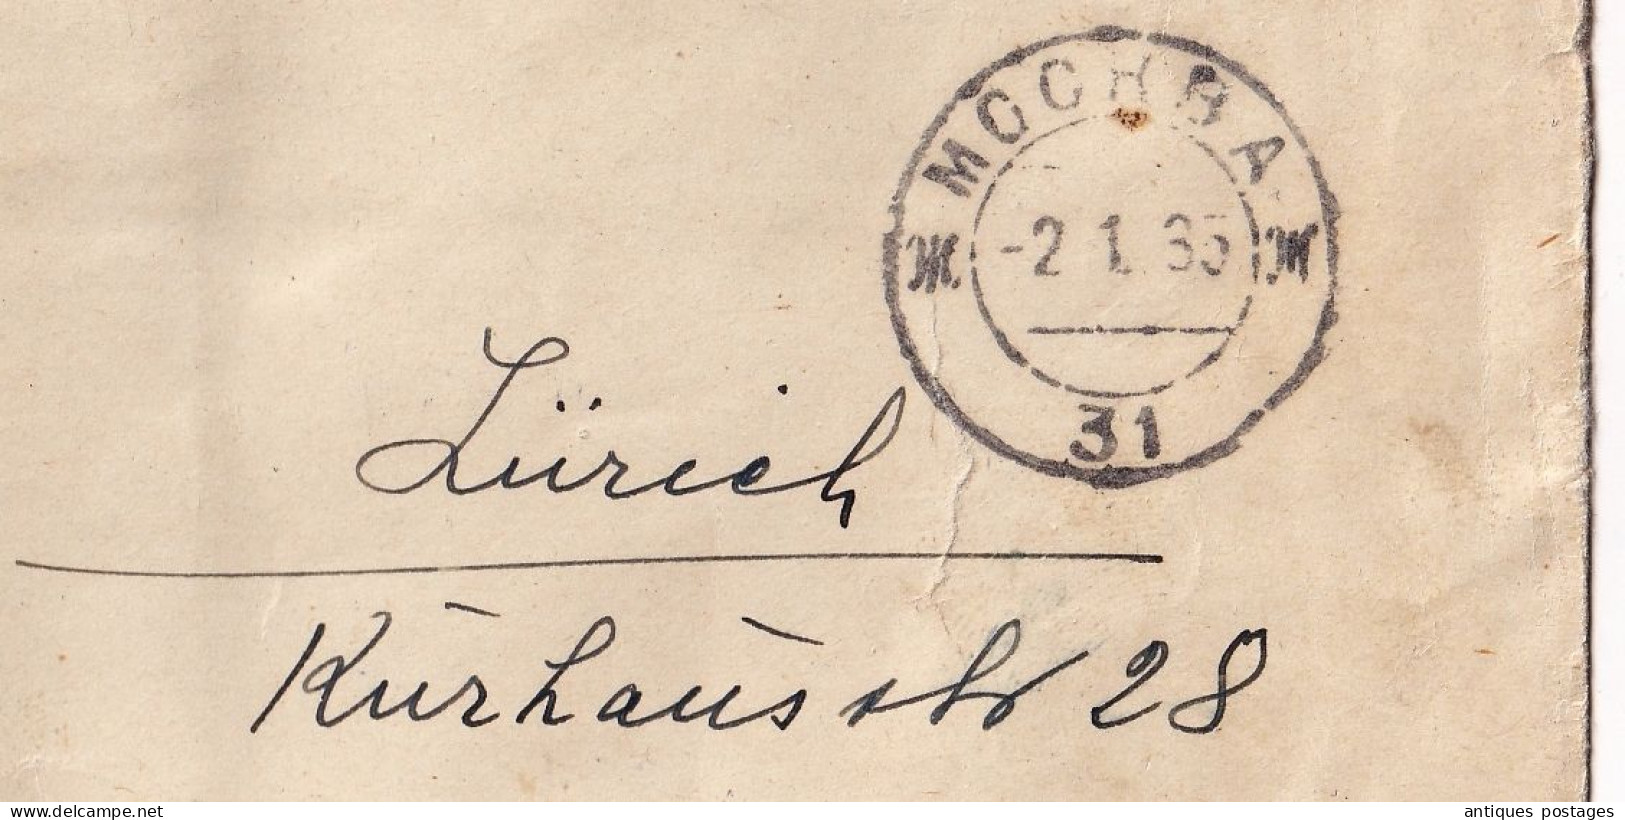 МОСКВА
Ж Ж
-2 1. 35
31
Zürich
Kurhausstr 28
www.delcampe.net
antiques postages